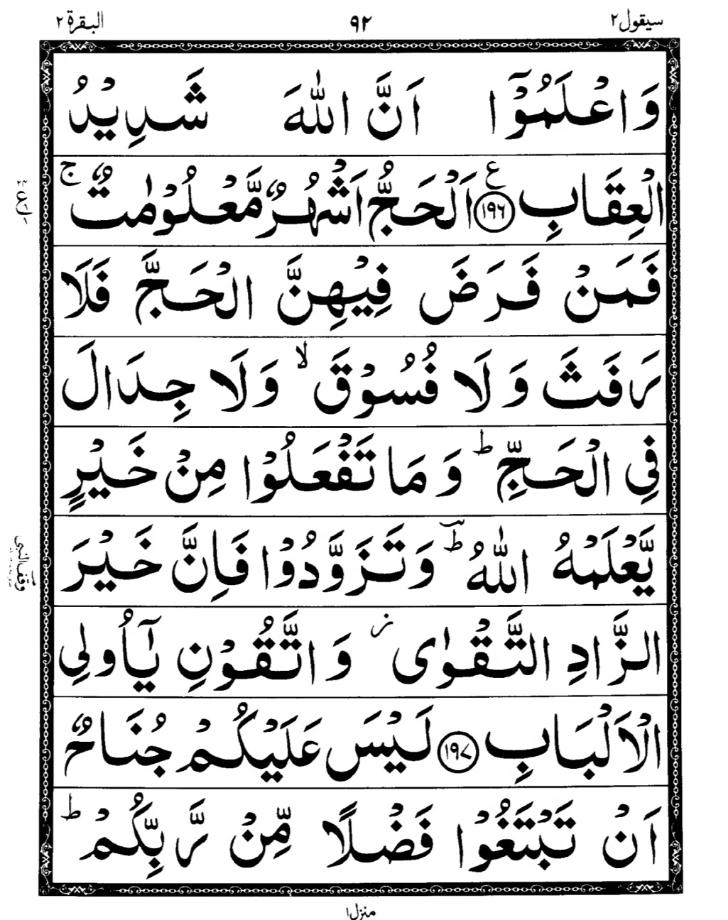 سيقول٢ ٩٢ البقرة٢
وَاعْلَمُوْٓا اَنَّ اللّٰهَ شَدِيْدُ
الْعِقَابِ ﴿١٩٦﴾ ع اَلْحَجُّ اَشْهُرٌ مَّعْلُوْمٰتٌ ۚ
فَمَنْ فَرَضَ فِيْهِنَّ الْحَجَّ فَلَا
رَفَثَ وَلَا فُسُوْقَ ۙ وَلَا جِدَالَ
فِي الْحَجِّ ؕ وَمَا تَفْعَلُوْا مِنْ خَيْرٍ
يَّعْلَمْهُ اللّٰهُ ؔؕ وَتَزَوَّدُوْا فَاِنَّ خَيْرَ
الزَّادِ التَّقْوٰى ز وَاتَّقُوْنِ يٰٓاُولِي
الْاَلْبَابِ ﴿١٩٧﴾ لَيْسَ عَلَيْكُمْ جُنَاحٌ
اَنْ تَبْتَغُوْا فَضْلًا مِّنْ رَّبِّكُمْ ؕ
منزل١